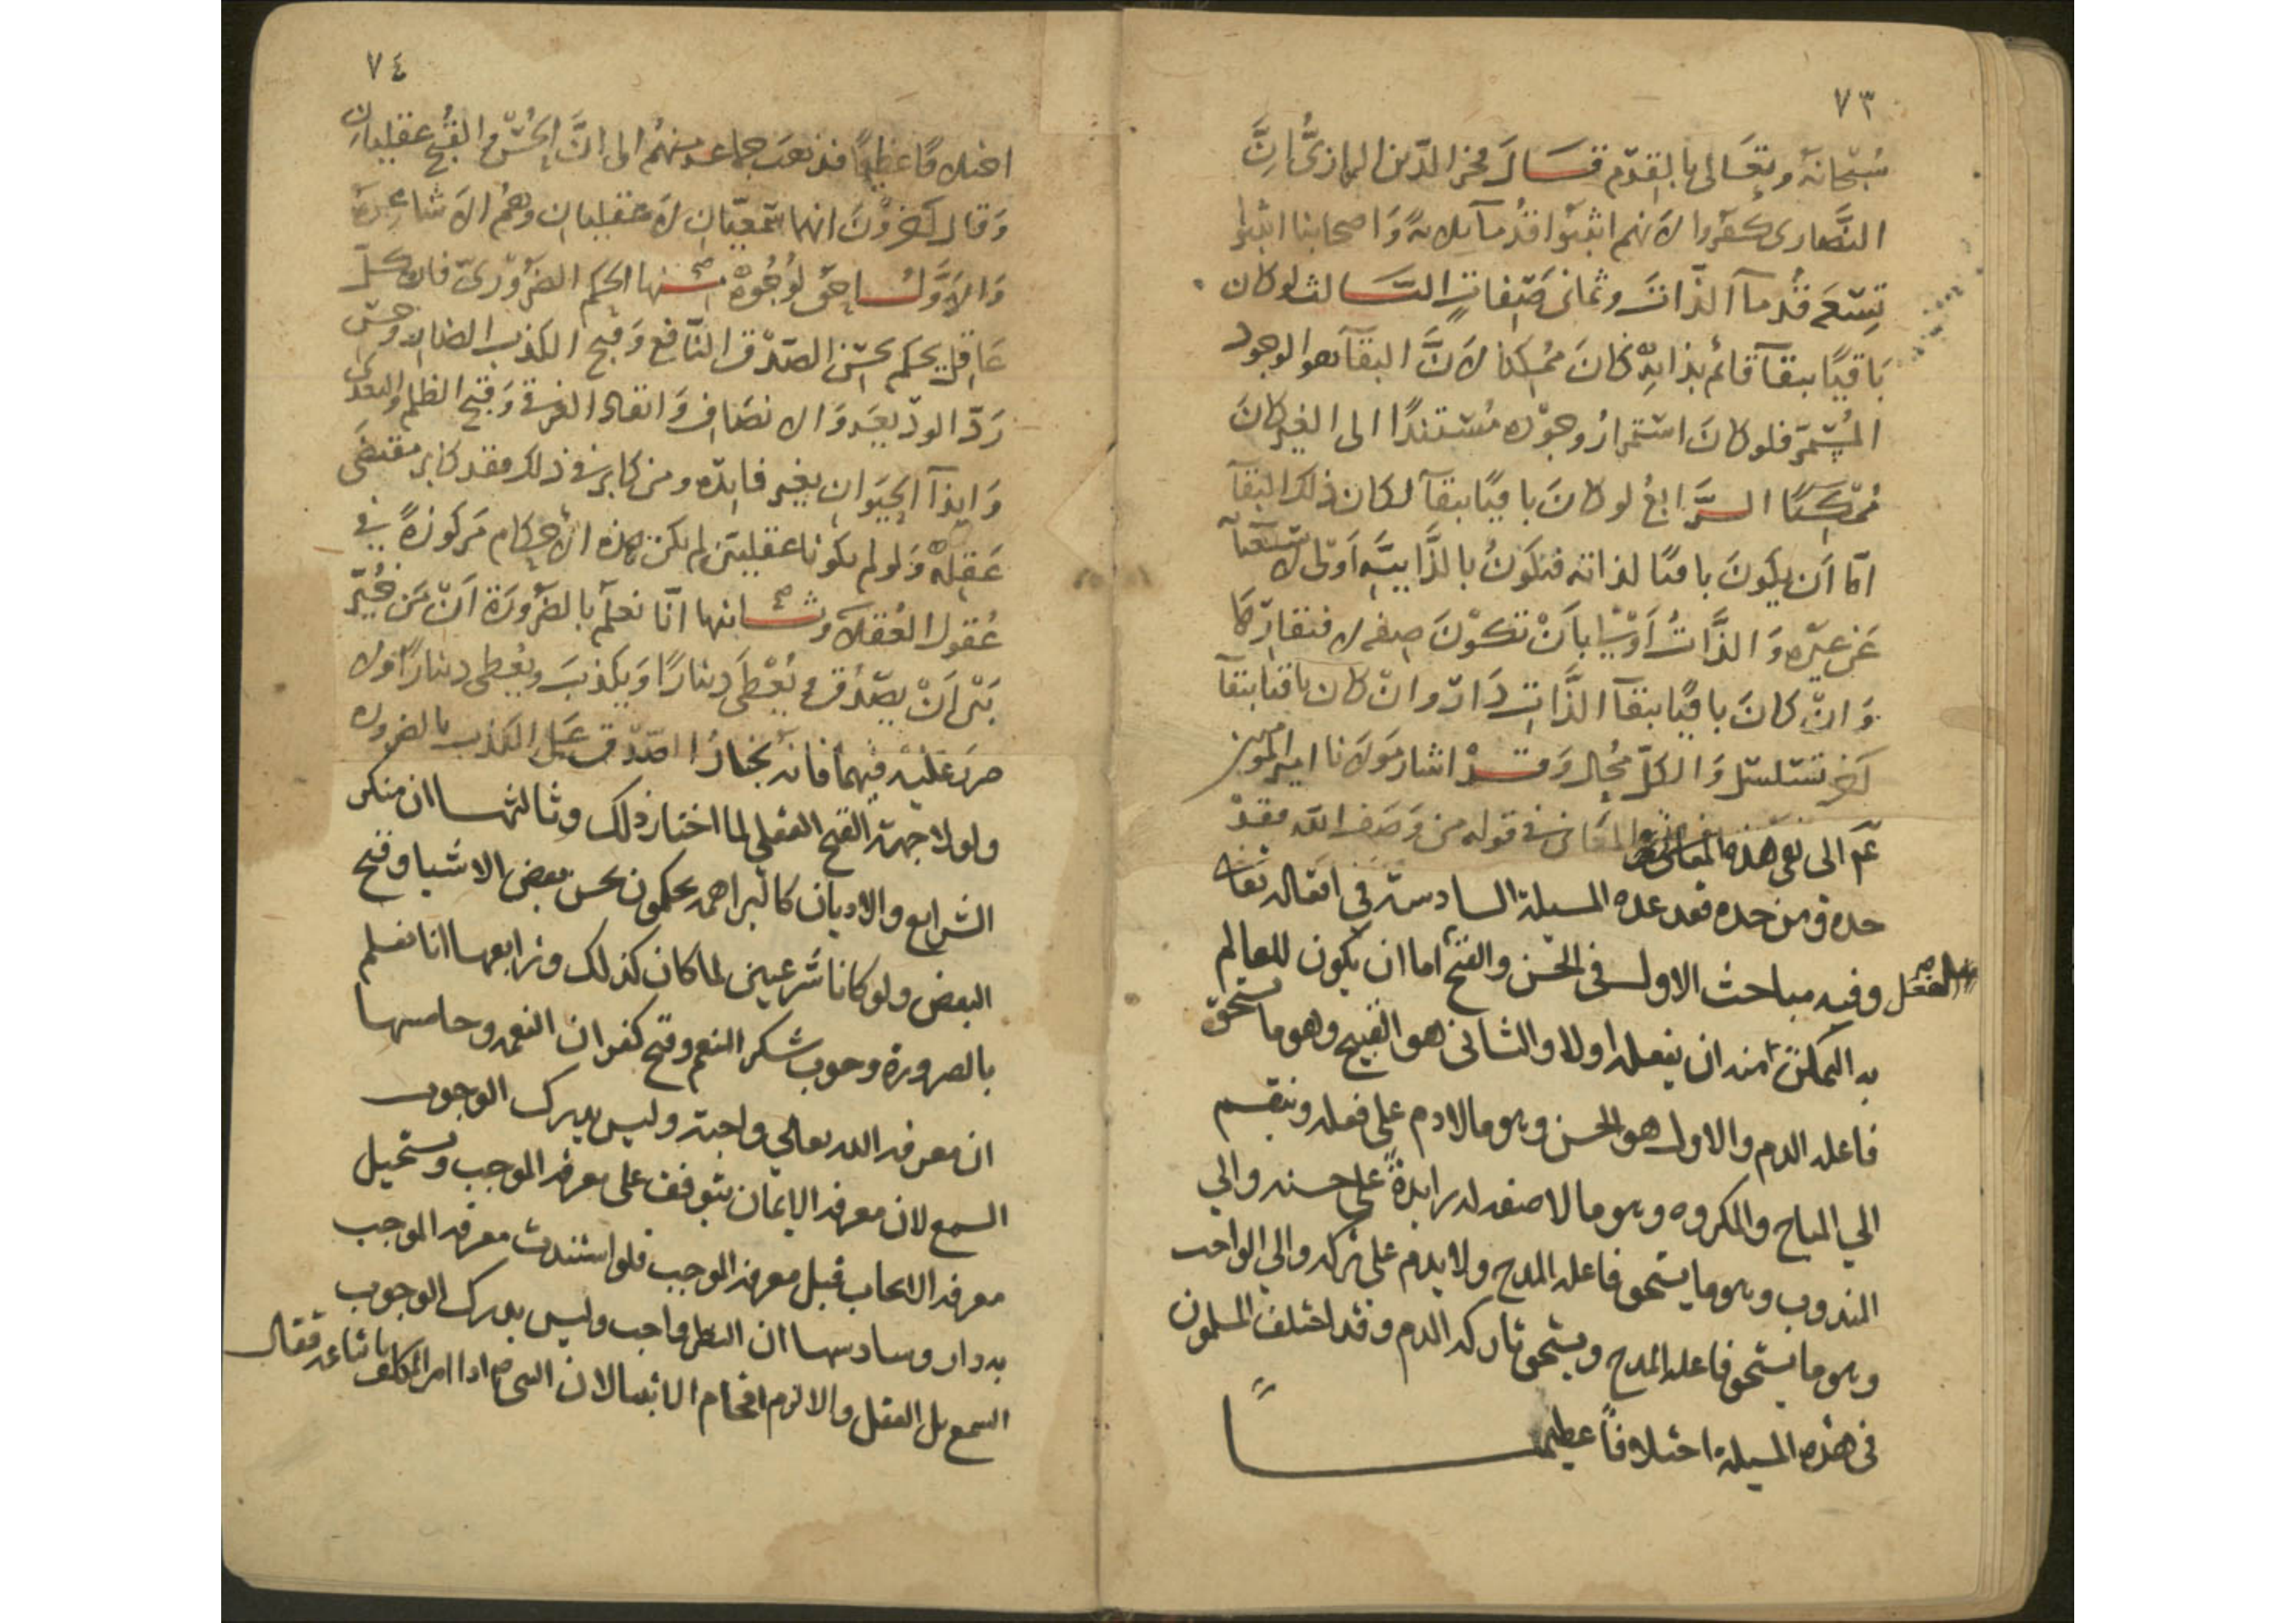 ٧٣
سُبحَانَهُ وتعَالى بالقِدَم قَالَ فخر الدّين الرازىُّ اِنَّ
النَّصارى كفَروا لانهم اثبتوا قدُمآ ثلاثةً وَاصحابنا اثبتوا
تِسْعَة قدُمآ الذَّات وثمانى صِفاتٍ الثَّالث لو كان
بَاقيًا ببقآ قائم بذاتِهِ كانَ ممُكنا لانَّ البقآ هو الوجود
المُستمرّ فلو كانَ استمرارُ وجودِه مُستندًا الى الغير كانَ
مُمكِنًا الرَّابعُ لو كانَ باقيًا ببقآ لكان ذلك البقآ
امّا اَن يكونَ باقيًا لذاته فتكونُ بالذَّاتيَّهِ اَولى لاستغنآ
عَن غيرِه وَالذَّاتُ اَوْلى بِاَنْ تكوْنَ صِفه لافتقارِها
وَان كانَ باقيًا ببقآ الذَّاتِ دَارَ وان كان باقيا ببقآ
آخر تسَلسَل وَالكلّ مُحال وَقَدْ اشار مَولانا امير المومنين
عم الى نفى هذه المعانى فى قوله من وَصَف الله فقدْ
حده ومن حده فقد عده المسيلة السادسة فى افعاله تعالى
وفيه مباحث الاول فى الحسن والقبح اما ان يكون للعالم الفعل
به المتمكن منه ان يفعله اولا والثانى هو القبيح وهو ما يستحق
فاعله الذم والاول هو الحسن وهو ما لا ذم على فعله وينقسم
الي المباح والمكروه وهو ما لا صفه له زايدة على حسنه والي
المندوب وهو ما يستحق فاعله المدح ولا يذم على تركه والي الواجب
وهو ما يستحق فاعله المدح ويستحق تاركه الذم وقد اختلف المسلمون
فى هذه المسيلة اختلافاً عظيما
٧٤
اختلافًا عَظِيمًا فذهَبَ جماعه منهُم الى انَّ الحُسْن والقُبح عقليان
وَقال آخرونَ انهما سَمعيّان لا عَقليان وَهُم الاشاعِرة
وَالاوَّلُ احق لوُجُوهٌ منها الحكم الضَّرُورىّ فان كلّ
عَاقل يحكم بحسْن الصّدق النَّافع وَقبح الكذب الضار وحسن
رَدّ الوديعَه وَالانصَاف وَانقاد الغرقى وَقبح الظلم والتعدى
وَايذآ الحيَوان بغير فايدَه ومن كابر فى ذلك فقد كابر مقتضى
عَقله وَلو لم يكونا عقليين لم يكن هذه الاحكام مَركوزةً فى
عُقول العُقلآ وثَانيها انَّا نعلم بالضَّرورَة اَنّ مَن خُيّر
بَين اَنْ يصْدُق ويُعْطى دِينارًا وَيكذبَ ويُعطى دينارًا ولا
ضرر عليه فيهما فانه يختارُ الصّدْق عَلى الكذب بالضروره
ولولا جهة القبح العقلي لما اختار ذلك وثالثها ان منكر
الشرايع والاديان كالبراهمه يحكمون بحسن بعض الاشيا وقبح
البعض ولو كانا شرعيين لما كان كذلك ورابعها انا نعلم
بالضرورة وجوب شكر النعم وقبح كفران النعمه وخامسها
ان معرفه الله تعالي واجبة وليس يدرك الوجوب
السمع لان معرفه الايمان يتوقف على معرفه الموجب ويستحيل
معرفه الايجاب قبل معرفه الموجب فلو استندت معرفه الموجب
به دار وسادسها ان النظر واجب وليس يدرك الوجوب
السمع بل العقل والا لزم افحام الانبيا لان النبى اذا امر المكلف باتباعه فقال